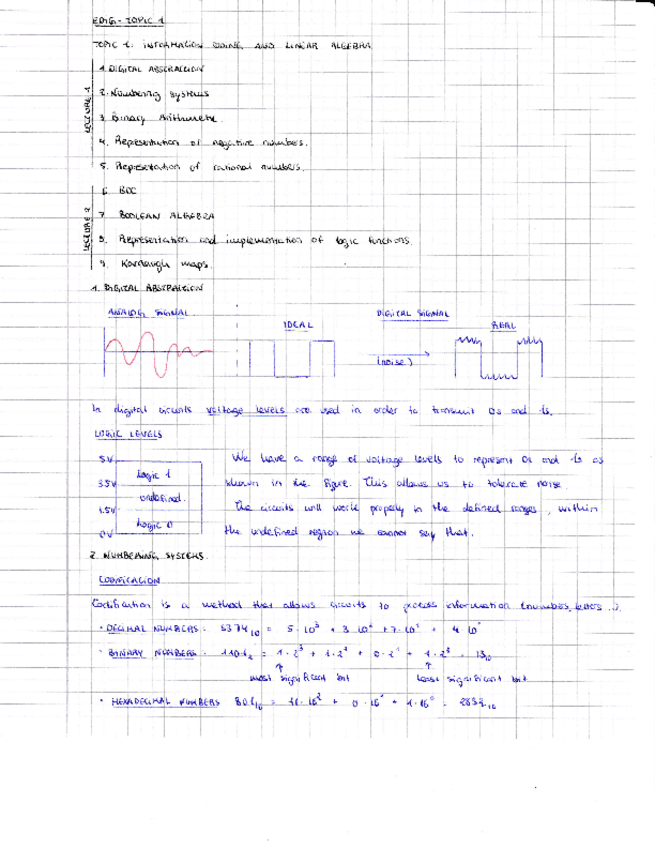 EDIG - TOPIC 1
TOPIC 1: INFORMATION CODING AND LINEAR ALGEBRA
LECTURE 1
1. DIGITAL ABSTRACTION
2. Numbering systems
3. Binary Arithmetic.
4. Representation of negative numbers.
5. Representation of rational numbers.
6. BCD
LECTURE 2
7. BOOLEAN ALGEBRA
8. Representation and implementation of logic functions.
9. Karnaugh maps.
1. DIGITAL ABSTRACTION
ANALOG SIGNAL
DIGITAL SIGNAL
IDEAL
REAL
(noise)
In digital circuits voltage levels are used in order to transmit 0s and 1s.
LOGIC LEVELS
5V
3.5V
1.5V
0V
Logic 1
undefined.
Logic 0
We have a range of voltage levels to represent 0s and 1s as
shown in the figure. This allows us to tolerate noise.
The circuits will work properly in the defined ranges, within
the undefined region we cannot say that.
2. NUMBERING SYSTEMS
CODIFICATION
Codification is a method that allows circuits to process information (numbers, letters...).
· DECIMAL NUMBERS: 5374₁₀ = 5·10³ + 3·10² + 7·10¹ + 4·10⁰
· BINARY NUMBERS: 1101₂ = 1·2³ + 1·2² + 0·2¹ + 1·2⁰ = 13₁₀
most significant bit
Least significant bit
· HEXADECIMAL NUMBERS